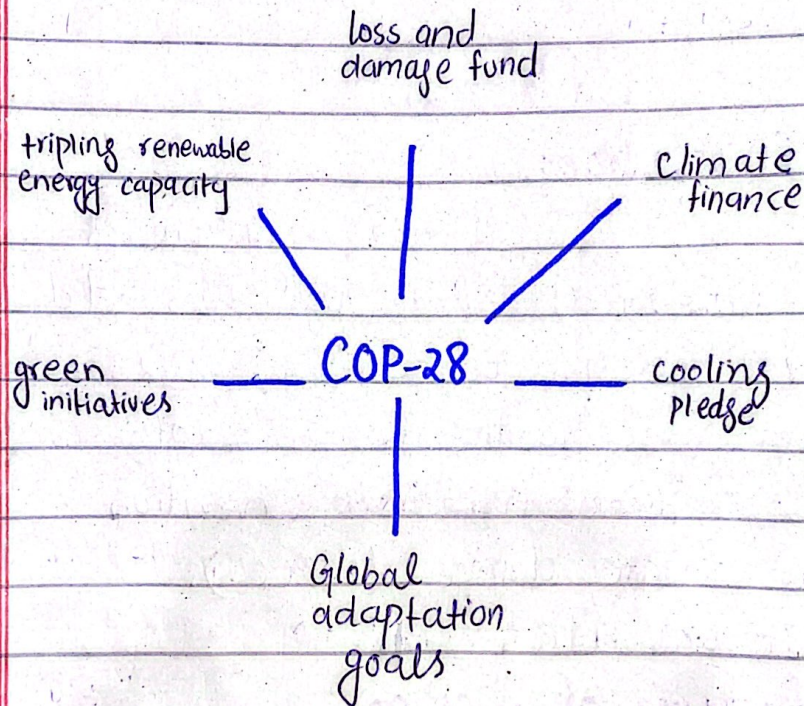 loss and
damage fund
tripling renewable
energy capacity
climate
finance
COP-28
green
initiatives
cooling
pledge
Global
adaptation
goals